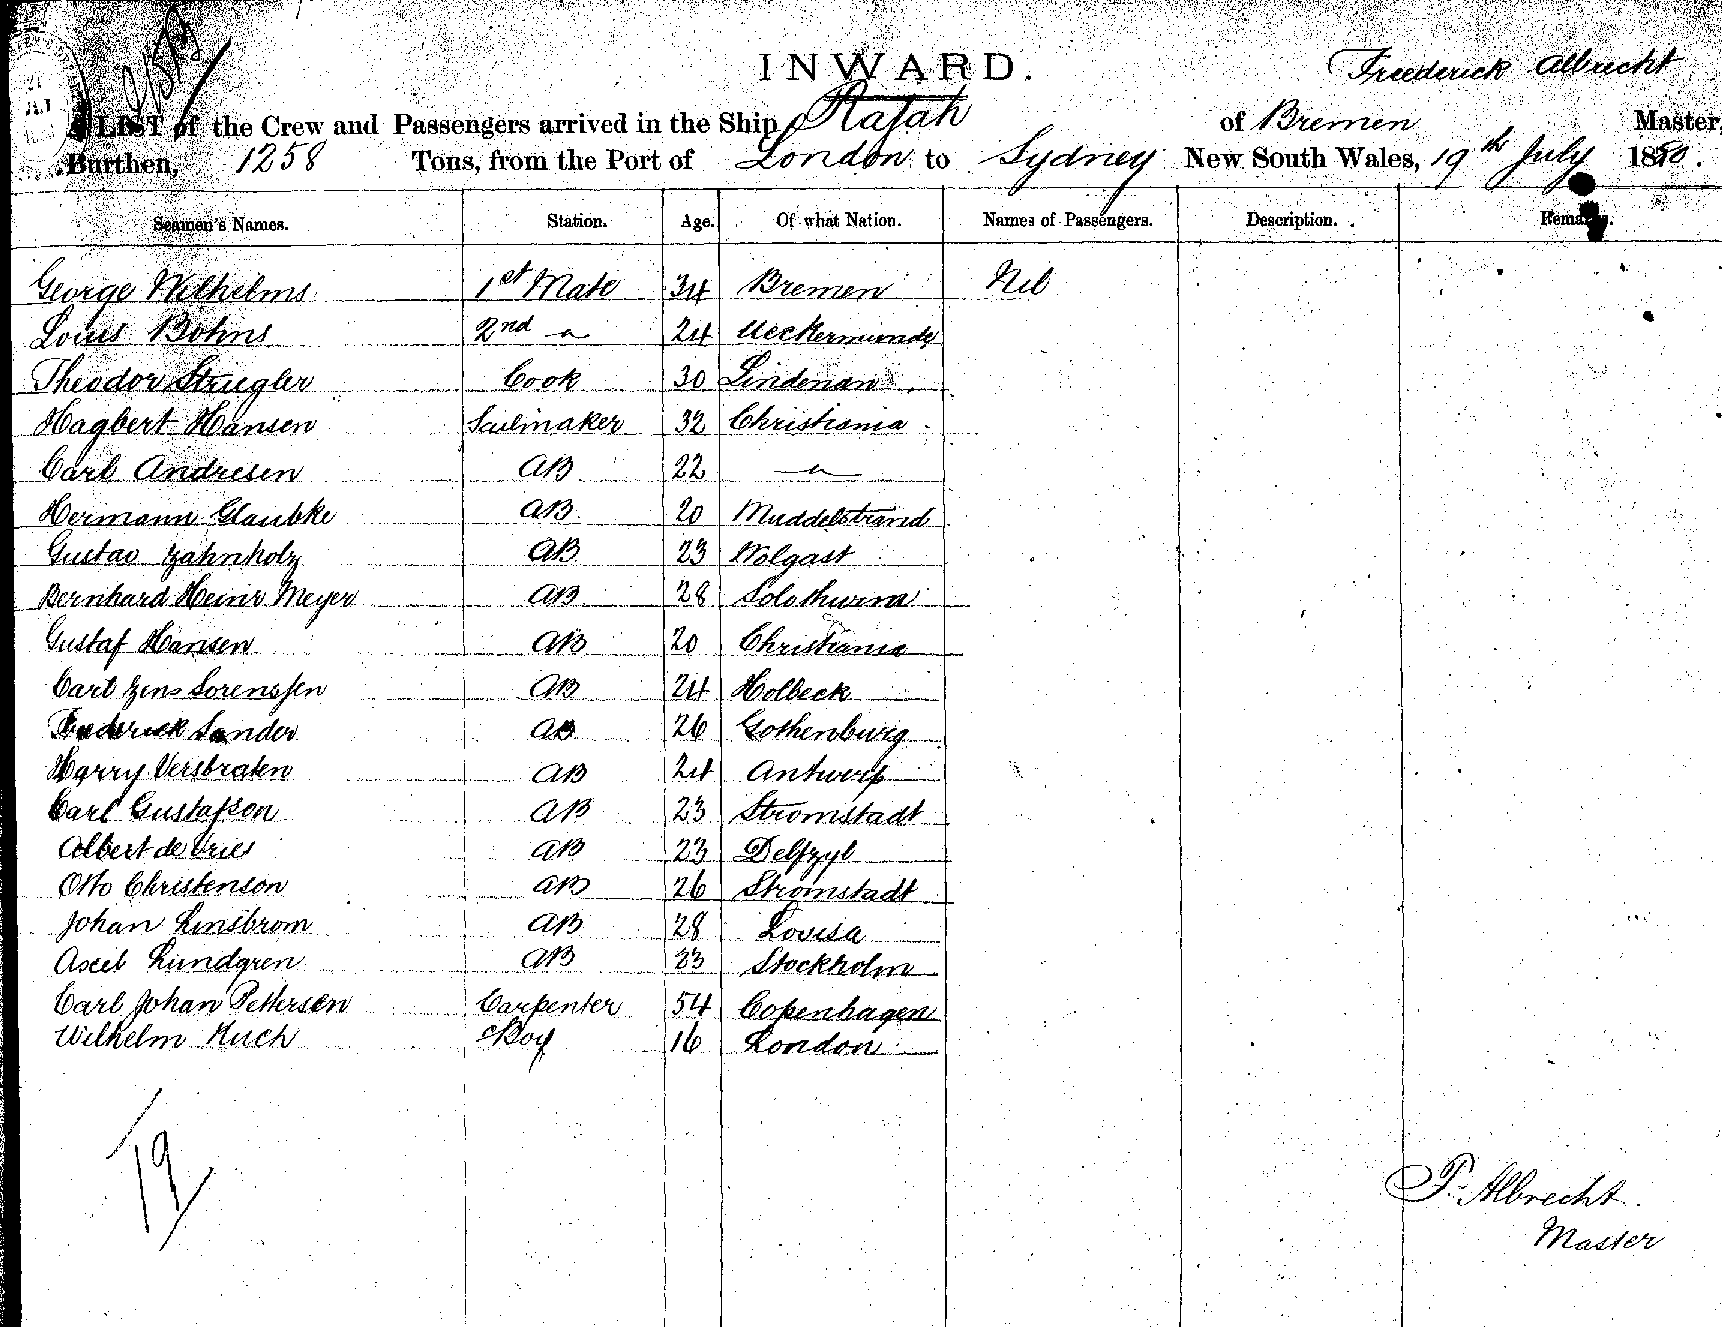 INWARD.
Freederick Albrecht
A LIST of the Crew and Passengers arrived in the Ship Rajah of Bremen Master,
Burthen, 1258 Tons, from the Port of London to Sydney New South Wales, 19th July 1880.
Seamen's Names. Station. Age. Of what Nation. Names of Passengers. Description. Remarks.
George Wilhelms 1st Mate 34 Bremen Nil
Louis Bohms 2nd " 24 Ueckermunde
Theodor Strugler Cook 30 Lindenau
Hagbert Hansen Sailmaker 32 Christiania
Carl Andresen AB 22 "
Hermann Glaubke AB 20 Muddelstrand
Gustav Zahnholz AB 23 Wolgast
Bernhard Heinr Meyer AB 28 Solothurna
Gustaf Hansen AB 20 Christiania
Carl Jens Sorenssen AB 24 Holbeck
Frederick Sander AB 26 Gothenburg
Harry Versbraten AB 24 Antwerp
Carl Gustafson AB 23 Stromstadt
Albert de Vries AB 23 Delfzyl
Otto Christenson AB 26 Stromstadt
Johan Linsbrom AB 28 Lovisa
Axel Lundgren AB 23 Stockholm
Carl Johan Pettersen Carpenter 54 Copenhagen
Wilhelm Huch Boy 16 London
19
F. Albrecht
Master